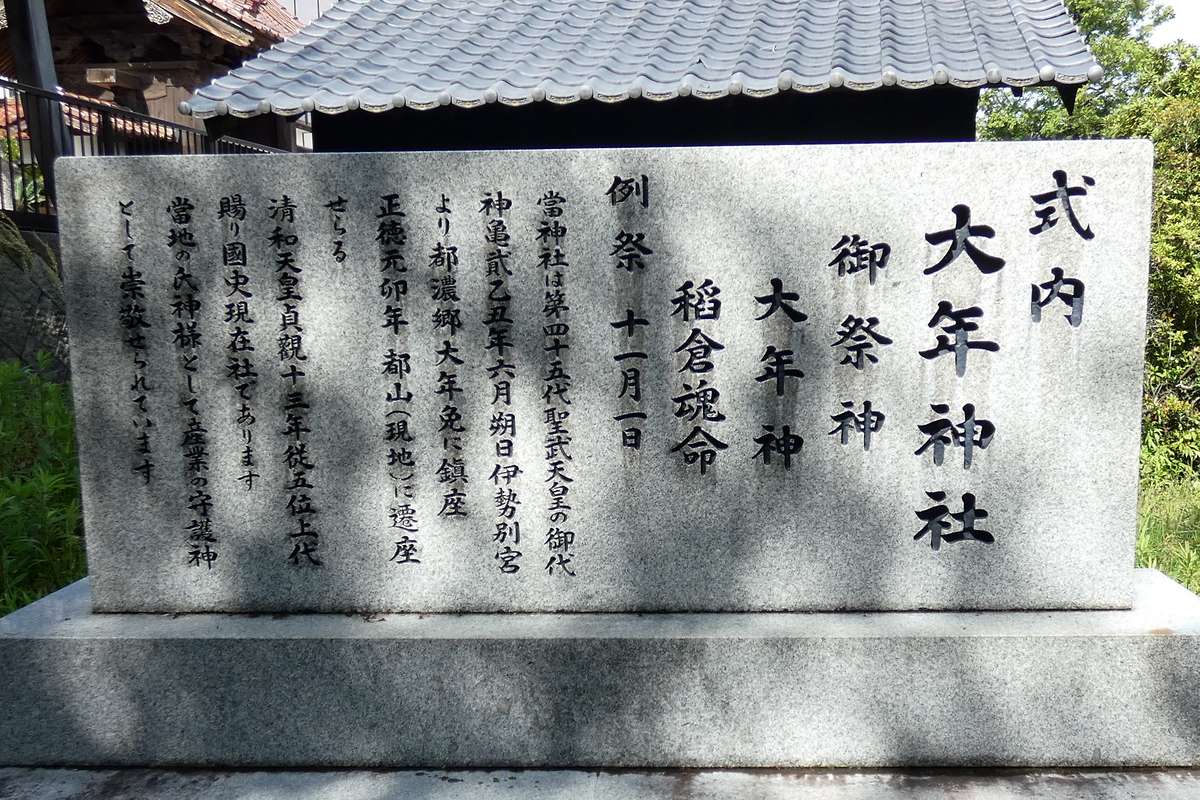 式内
大年神社
御祭神
大年神
稻倉魂命
例祭 十一月一日
當神社は第四十五代聖武天皇の御代
神亀貮乙丑年六月朔日伊勢別宮
より都濃郷大年免に鎮座
正徳元卯年都山(現地)に遷座
せらる
清和天皇貞觀十三年従五位上代
賜り國史現在社であります
當地の氏神様として産業の守護神
として崇敬せられています